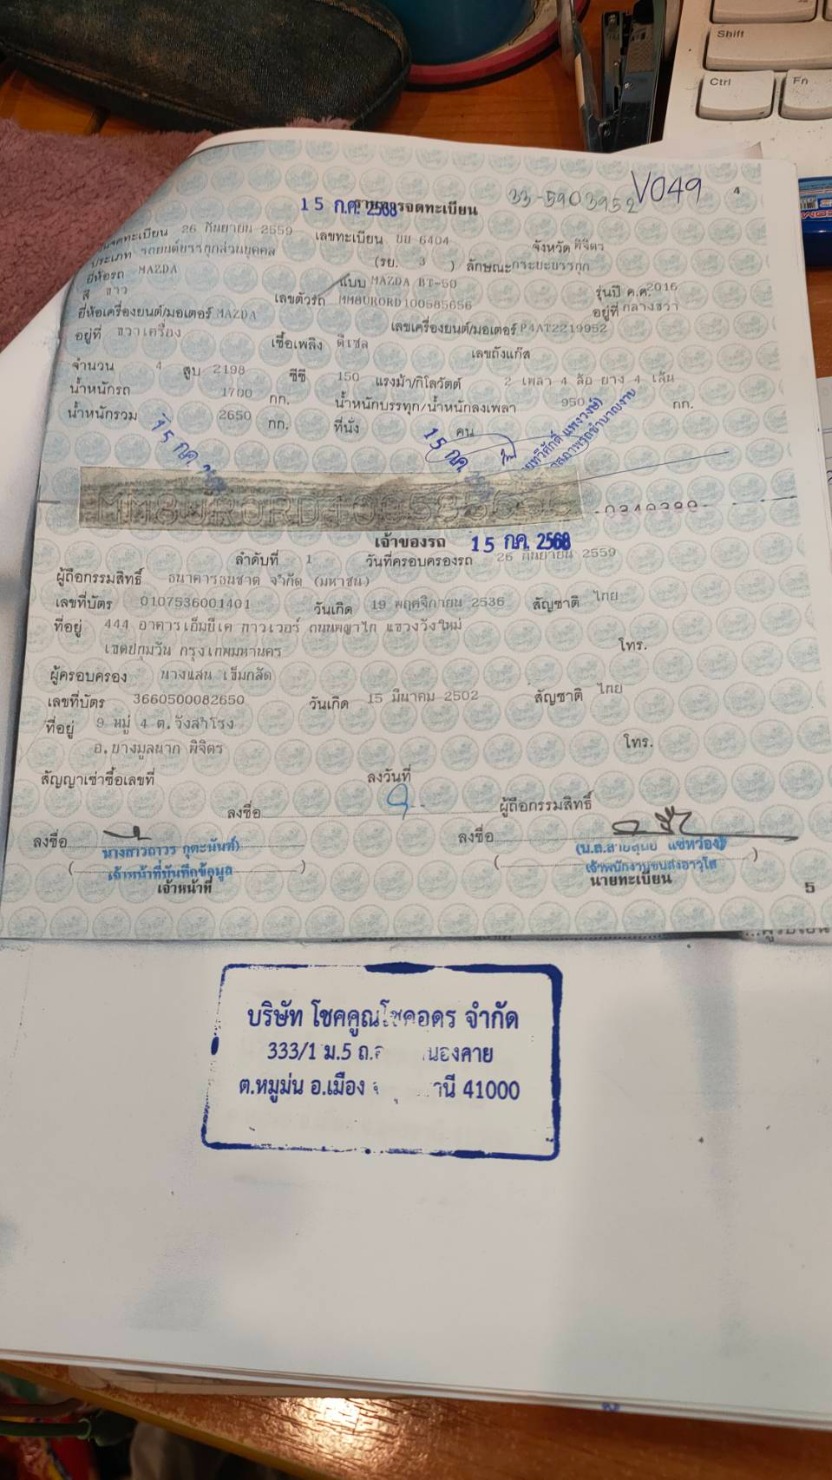 Shift
Ctrl
Fn
33-5903952 V049
4
15 ก.ค. 2568
รายการจดทะเบียน
วันจดทะเบียน 26 กันยายน 2559 เลขทะเบียน บม 6404 จังหวัด พิจิตร
ประเภท รถยนต์บรรทุกส่วนบุคคล (รย. 3 ) ลักษณะ กระบะบรรทุก
ยี่ห้อรถ MAZDA แบบ MAZDA BT-50 รุ่นปี ค.ศ. 2016
สี ขาว เลขตัวรถ MM8URORD100585656 อยู่ที่ กลางขวา
ยี่ห้อเครื่องยนต์/มอเตอร์ MAZDA เลขเครื่องยนต์/มอเตอร์ P4AT2219952
อยู่ที่ ขวาเครื่อง เชื้อเพลิง ดีเซล เลขถังแก๊ส
จำนวน 4 สูบ 2198 ซีซี 150 แรงม้า/กิโลวัตต์ 2 เพลา 4 ล้อ ยาง 4 เส้น
น้ำหนักรถ 1700 กก. น้ำหนักบรรทุก/น้ำหนักลงเพลา 950 กก.
น้ำหนักรวม 2650 กก. ที่นั่ง คน
15 กค.
15 กค.
MM8URORD100585656
เจ้าของรถ 15 กค. 2568
ลำดับที่ 1 วันที่ครอบครองรถ 26 กันยายน 2559
ผู้ถือกรรมสิทธิ์ ธนาคารธนชาต จำกัด (มหาชน)
เลขที่บัตร 0107536001401 วันเกิด 19 พฤศจิกายน 2536 สัญชาติ ไทย
ที่อยู่ 444 อาคารเอ็มบีเค ทาวเวอร์ ถนนพญาไท แขวงวังใหม่
เขตปทุมวัน กรุงเทพมหานคร โทร.
ผู้ครอบครอง นางแสน เข็มกลัด
เลขที่บัตร 3660500082650 วันเกิด 15 มีนาคม 2502 สัญชาติ ไทย
ที่อยู่ 9 หมู่ 4 ต.วังสำโรง
อ.บางมูลนาก พิจิตร โทร.
สัญญาเช่าซื้อเลขที่ ลงวันที่
ลงชื่อ ผู้ถือกรรมสิทธิ์
ลงชื่อ ลงชื่อ
( เจ้าหน้าที่บันทึกข้อมูล )
( เจ้าพนักงานขนส่งอาวุโส )
เจ้าหน้าที่ นายทะเบียน
5
บริษัท โชคคูณโชคอุดร จำกัด
333/1 ม.5 ถ. นองคาย
ต.หมูม่น อ.เมือง านี 41000